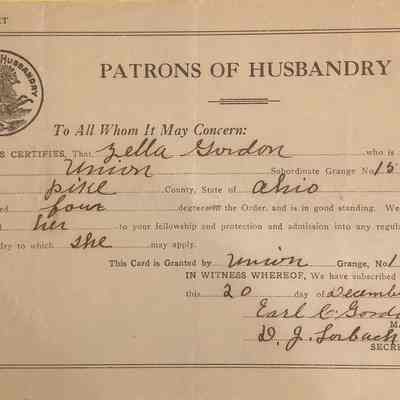 ET
HUSBANDRY
PATRONS OF HUSBANDRY
To All Whom It May Concern:
S CERTIFIES, That Zella Gordon who is a
Union Subordinate Grange No. 15
Pike County, State of Ohio
ed four degrees in the Order, and is in good standing. We
d her to your fellowship and protection and admission into any regula
dry to which she may apply.
This Card is Granted by Union Grange, No. 1
IN WITNESS WHEREOF, We have subscribed
this 20 day of December
Earl C. Gordo
MA
D. J. Lorbach
SECRE